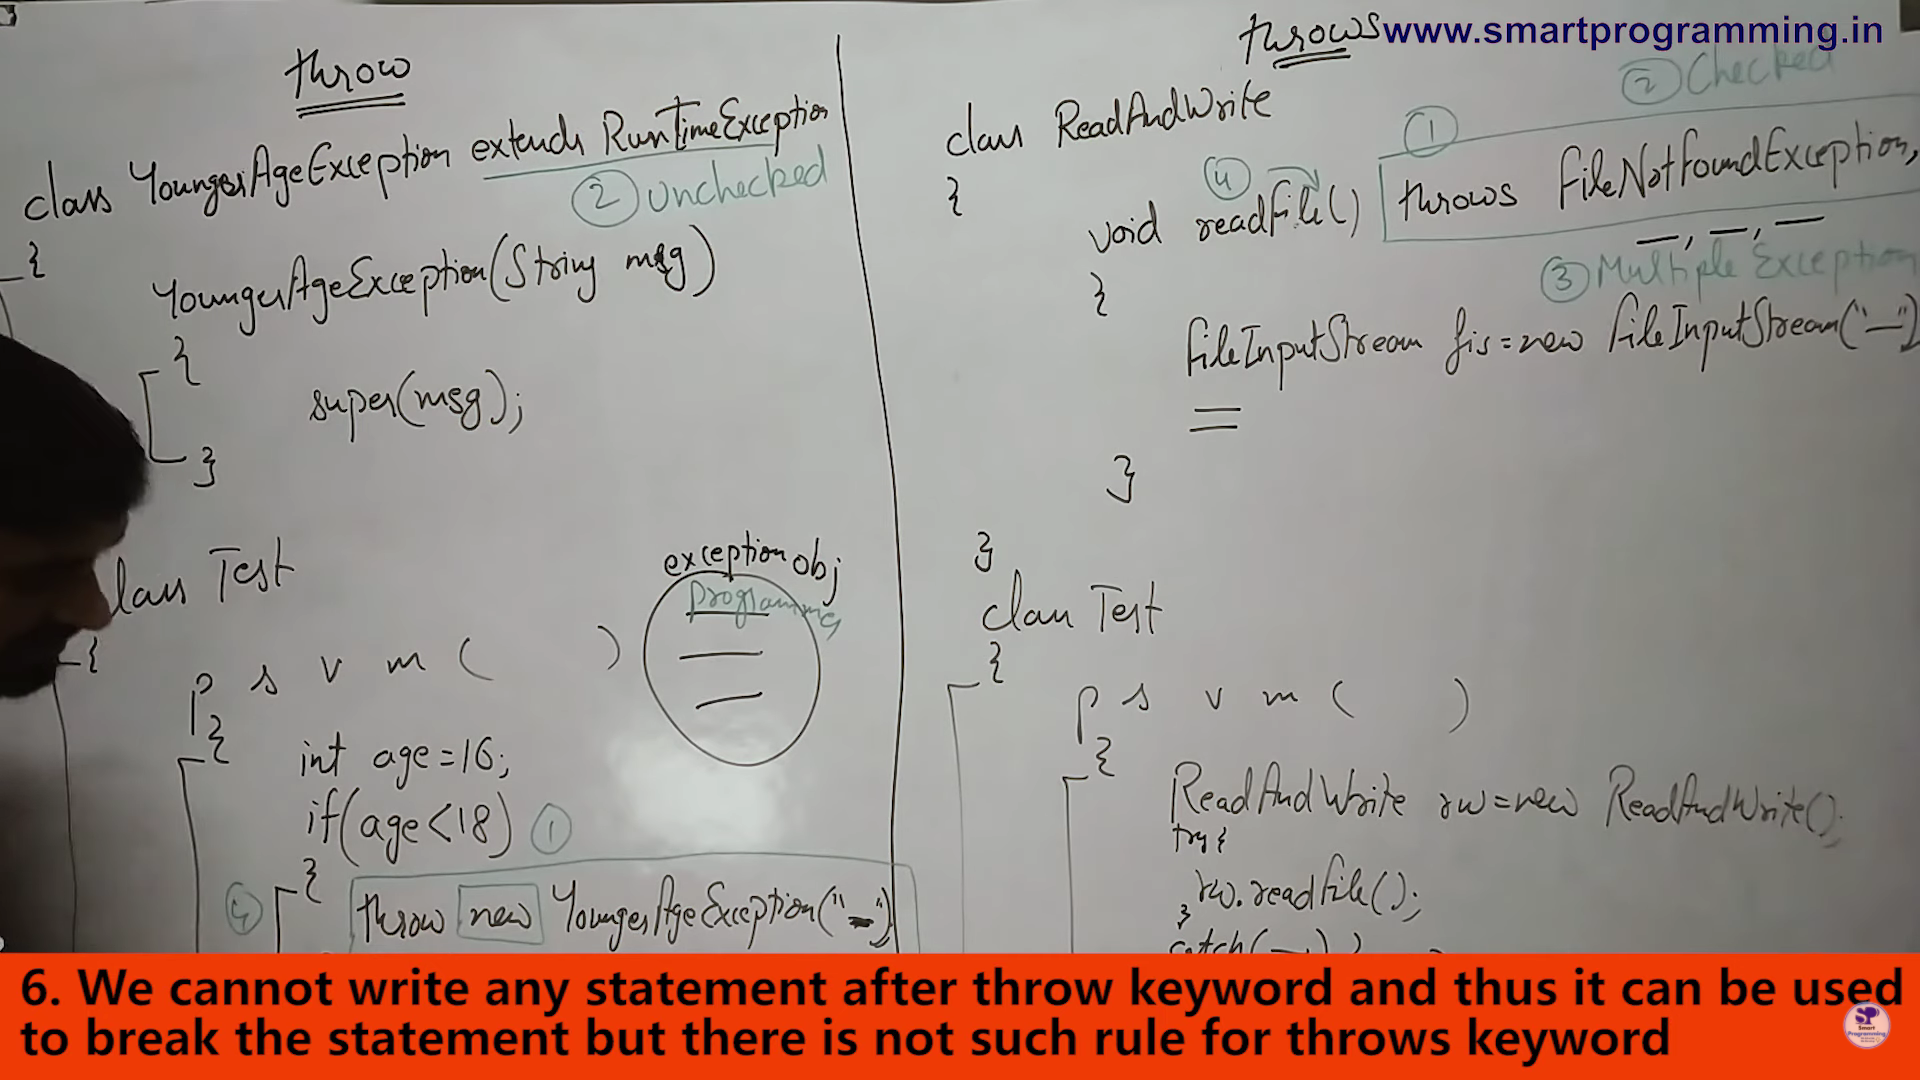 throw
class YoungerAgeException extends RunTimeException
② Unchecked
{
YoungerAgeException(String msg)
{
super(msg);
}
class Test
{
p s v m ( )
{
int age=16;
if(age<18) ①
{
throw new YoungerAgeException("—")
exception obj
Programmer
throws
www.smartprogramming.in
② Checked
class ReadAndWrite
{
④ ①
void readfile() throws FileNotFoundException,
—, —, —
③ Multiple Exception
{
FileInputStream fis=new FileInputStream("—")
}
}
class Test
{
p s v m ( )
{
ReadAndWrite rw=new ReadAndWrite();
try{
rw.readfile();
}
catch(—)
6. We cannot write any statement after throw keyword and thus it can be used
to break the statement but there is not such rule for throws keyword
SP
Smart
Programming